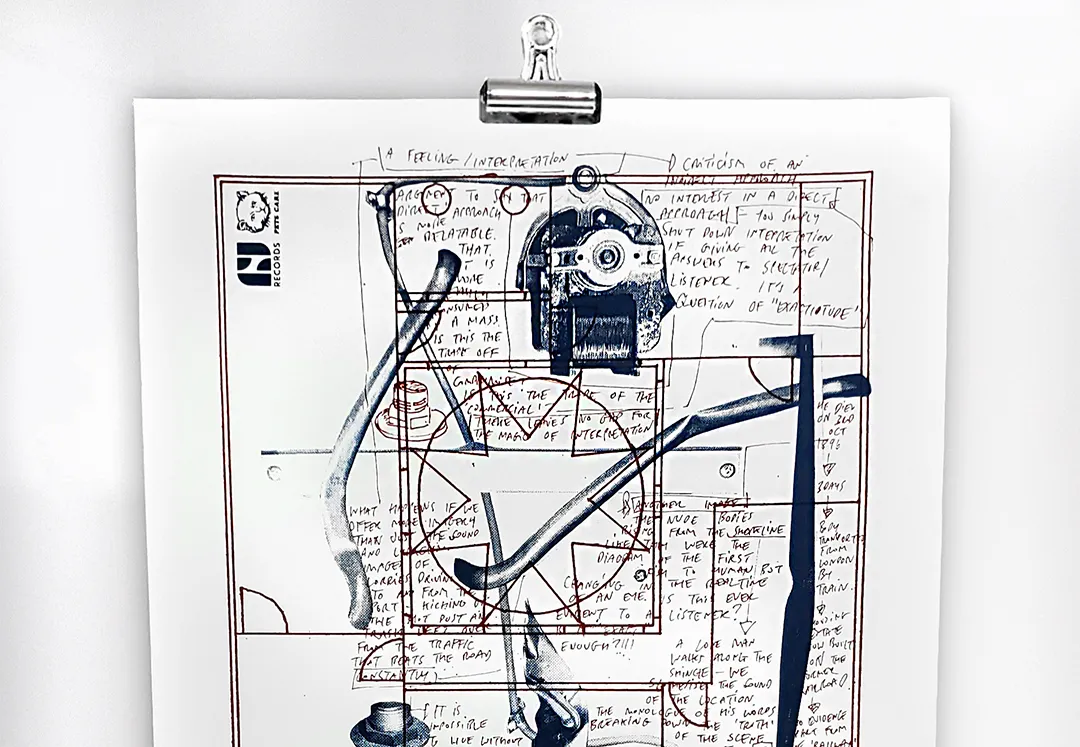 A FEELING / INTERPRETATION
D CRITICISM OF AN
INDIRECT APPROACH
PETS CARE
RECORDS
ARGUMENT TO SAY THAT
DIRECT APPROACH
IS MORE
RELATABLE.
THAT
IT IS
MORE
INSURED
A MASS.
IS THIS THE
TRADE OFF
OF
IS THIS THE TRADE OF THE
'COMMERCIAL'-
THERE LEAVES NO GAP FOR
THE MAGIC OF INTERPRETATION
NO INTEREST IN A DIRECT
APPROACH - YOU SIMPLY
SHUT DOWN INTERPRETATION
IF GIVING ALL THE
ANSWERS TO SPECTATOR/
LISTENER. IT'S A
QUESTION OF "EXACTITUDE"
HE DIED
ON 2ND
OCT
3 DAYS
BODY
TRANSPORTED
FROM
LONDON
BY
TRAIN.
WHAT HAPPENS IF WE
OFFER MORE IMAGERY
THAN JUST THE SOUND
AND
IMAGES OF
LORRIES DRIVING
TO AND FROM THE
PORT KICKING UP
THE HOT DUST AND
TRASH LEFT OVER
FROM THE TRAFFIC
THAT BEATS THE ROAD
CONSTANTLY)
B ANOTHER IMAGE
THE NUDE BODIES
RISING FROM THE SHORELINE
LIKE THEY WERE THE
DIAGRAM OF THE FIRST
TO HUMAN BUT
CHANGING IN THE REALTIME
OF AN EYE. IS THIS EVER
EVIDENT TO A LISTENER?
EXACT
ENOUGH?!!!
A LONE MAN
WALKS ALONG THE
SHINGLE - WE
THE SOUND
OF THE LOCATION.
THE MONOLOGUE OF HIS WORDS
BREAKING DOWN THE 'TRUTH'
OF THE SCENE
HOUSING
ESTATE
NOW BUILT
ON THE
FORMER
RAILROAD.
NO EVIDENCE
LEFT FROM
IT IS
IMPOSSIBLE
TO LIVE WITHOUT